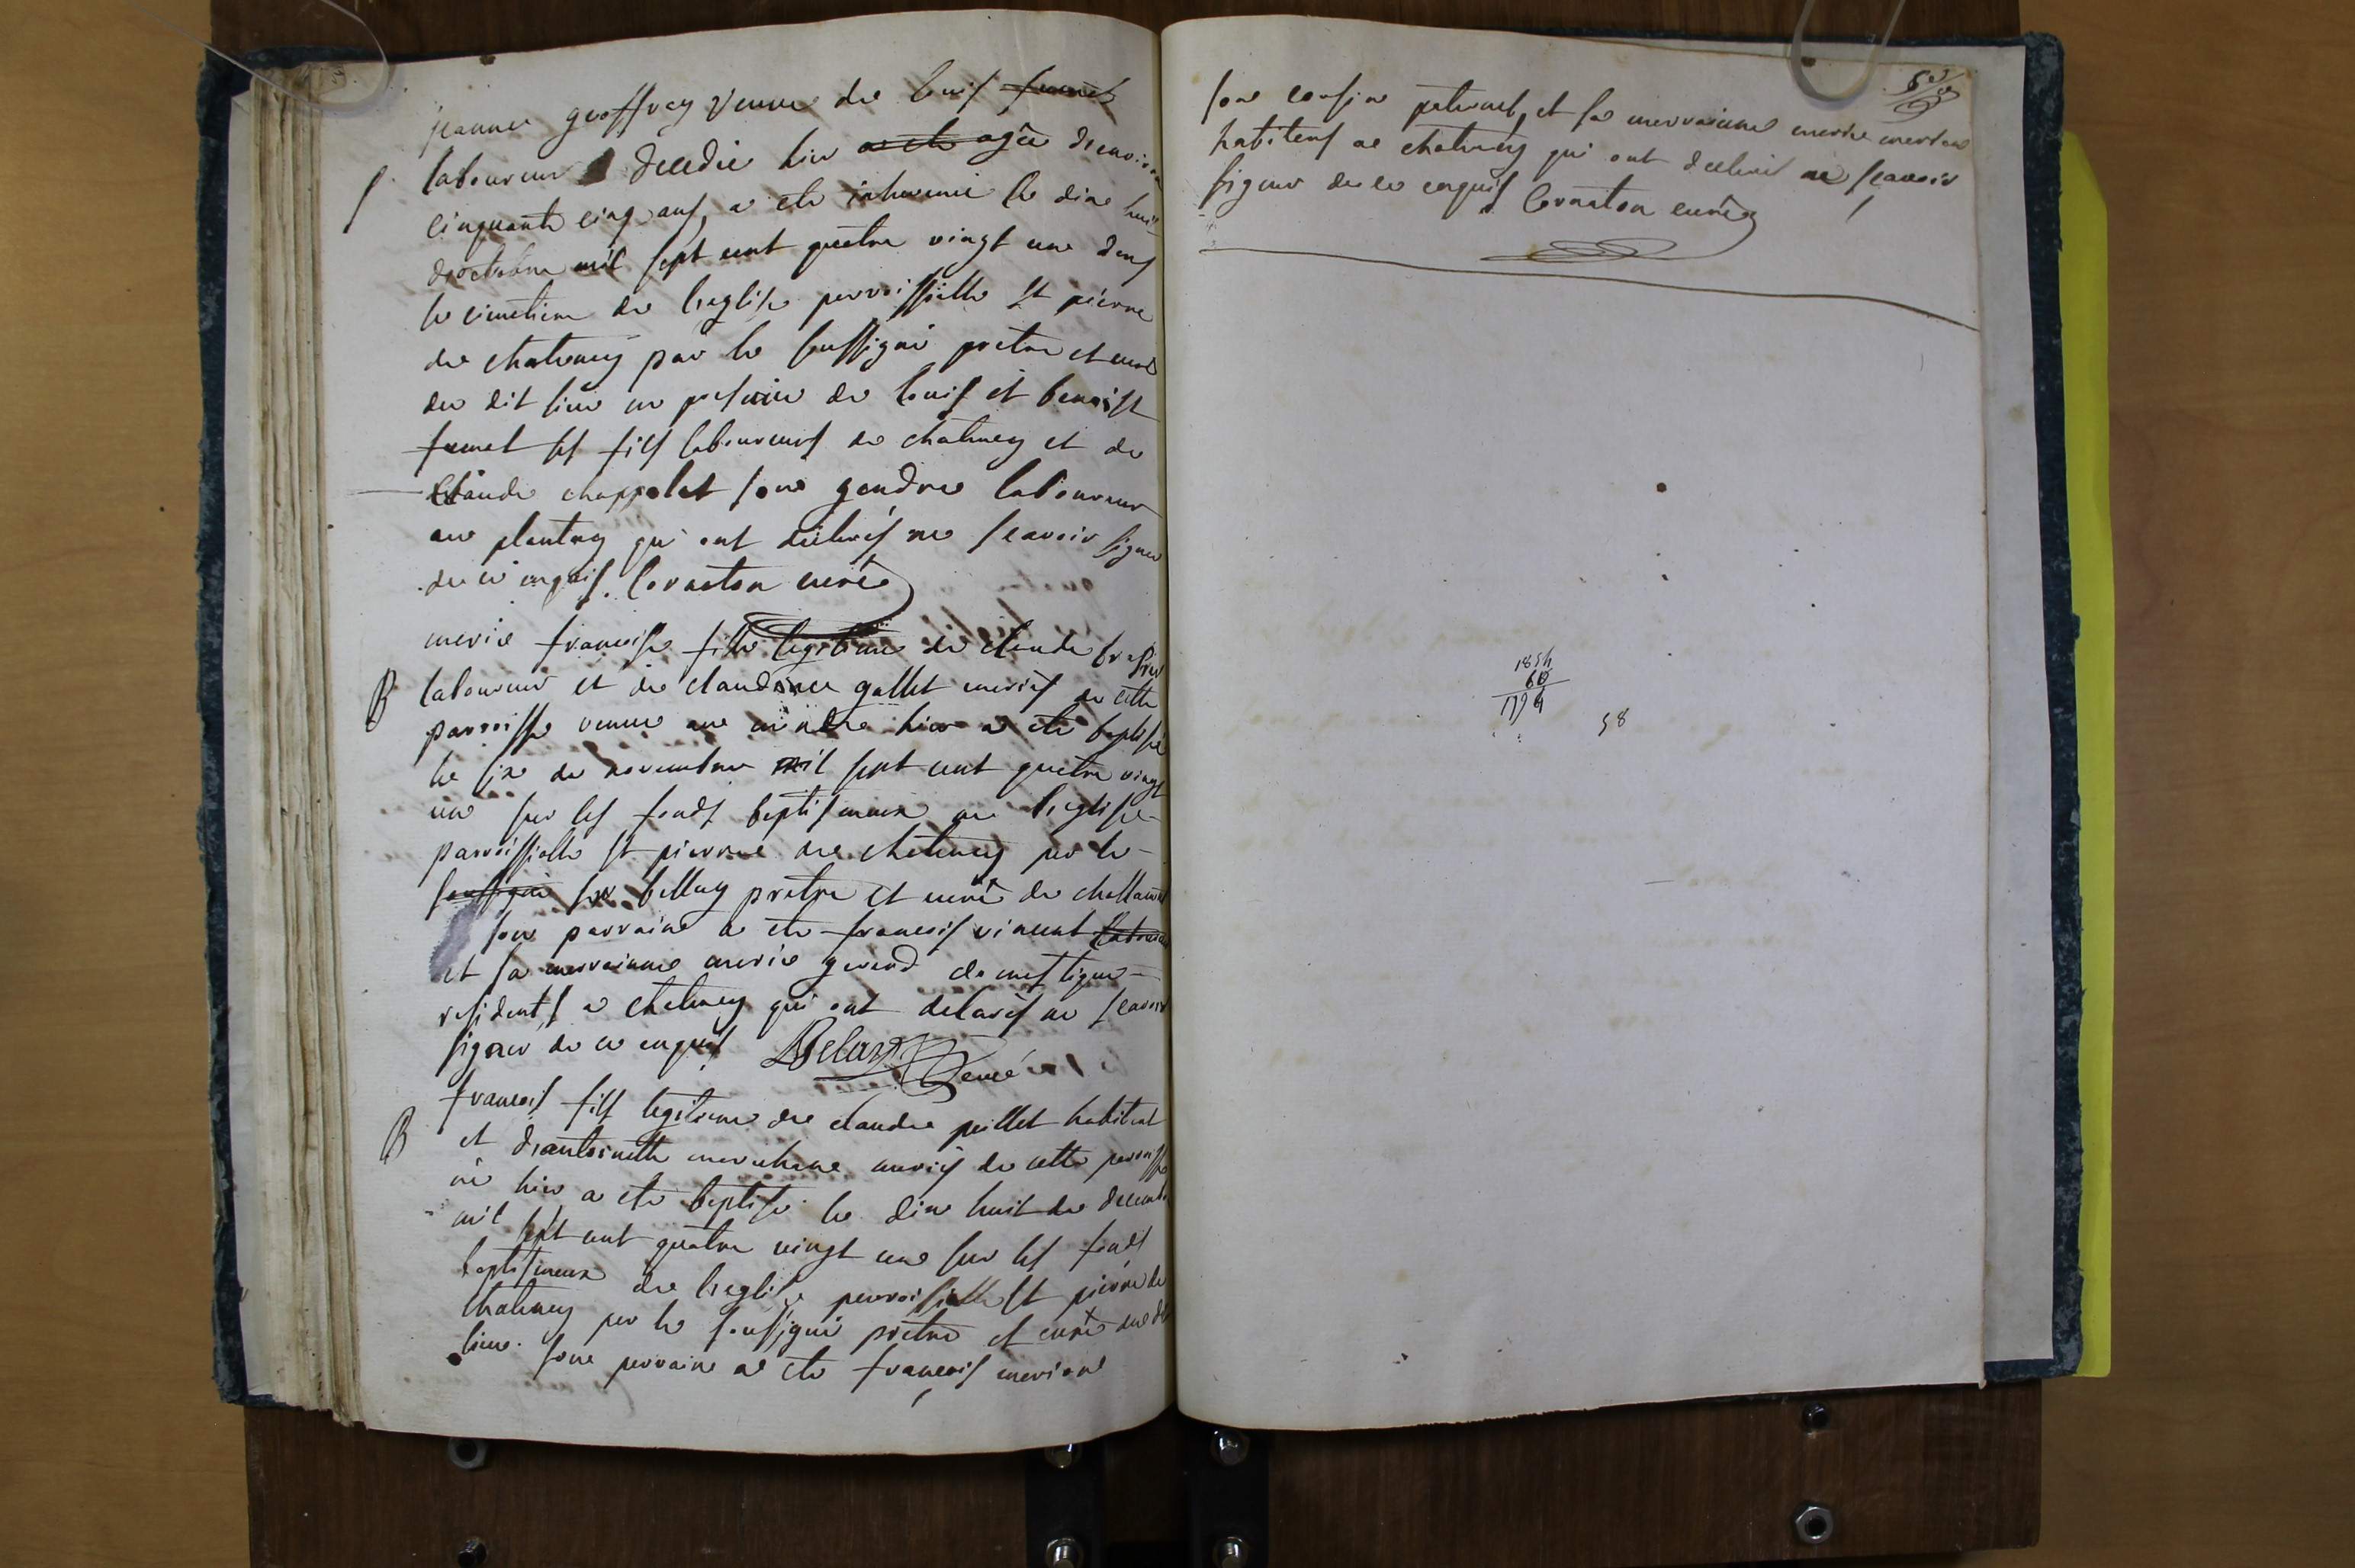 jeanne geoffray veuve de louis fumet
S laboureur decedée hier a ete agée denviron
cinquante cinq ans, a ete inhumée le dix huit
doctobre mil sept cent quatre vingt un dans
le cimetiere de leglise parroissialle St pierre
de chatenay par le soussigné pretre et curé
du dit lieu en presence de louis et benoist
fumet ses fils laboureurs de chatenay et de
Claude chappolet son gendre laboureur
au plantay qui ont déclarés ne scavoir signer
de ce enquis. Cornaton curé
marie francoise fille legitime de claude
B laboureur et de claudine gallet mariés de cette
parroisse venue au monde hier a ete baptisée
le six de novembre mil sept cent quatre vingt
un sur les fonds baptismaux de leglise
parroissialle St pierre de chatenay par le
soussigné sr bellay pretre et curé de
son parrain a ete francois vincent
et sa marrainne marie gerend domestique
residents a chatenay qui ont delarés ne scavoir
signer de ce enquis Belay curé
francois fils legitime de claude pillet habitant
B et dantoinette marechane mariés de cette parroisse
né hier a ete baptisé le dix huit de decembre
mil sept cent quatre vingt un sur les fonds
baptismaux de leglise parroissialle St pierre de
chatenay par le soussigné pretre et curé du dit
lieu. son parrain a ete francois merion
son cousin paternel, et sa marrainne marie
habitans de chatenay qui ont declaré ne scavoir
signer de ce enquis Cornaton curé
1854
60
1794
58